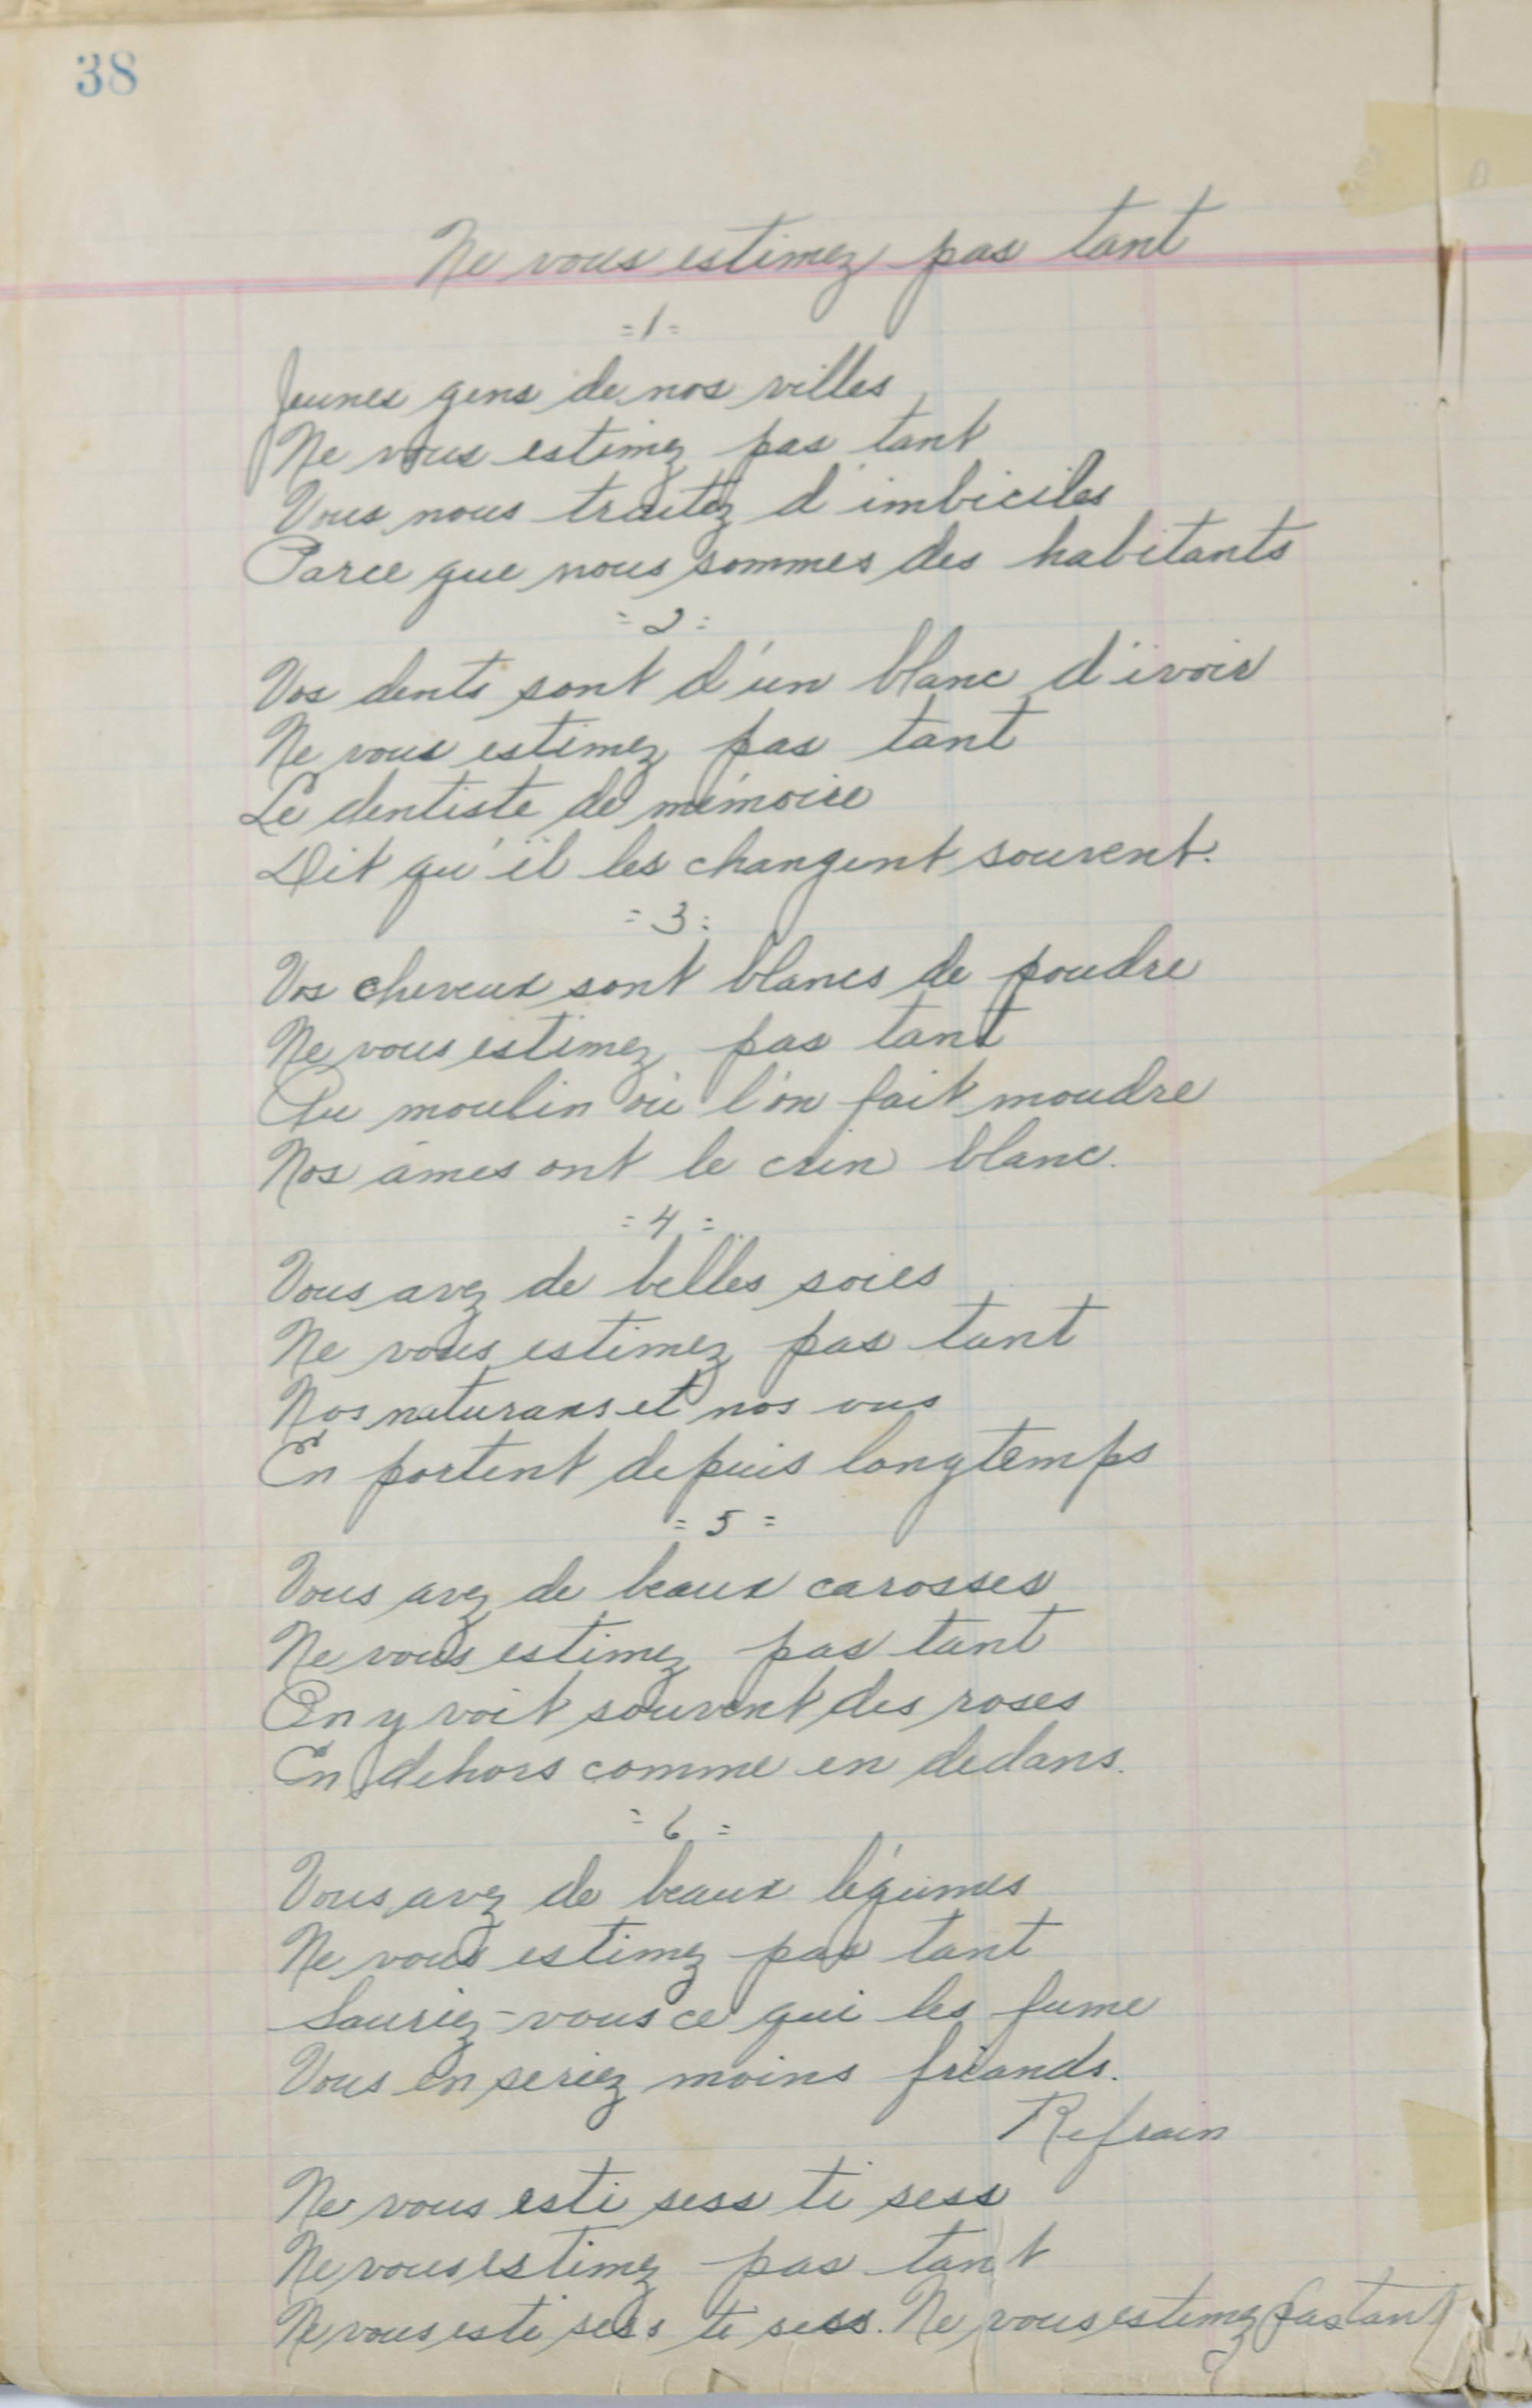 38
Ne vous estimez pas tant
=1=
Jeunes gens de nos villes
Ne vous estimez pas tant
Vous nous traitez d'imbiciles
Parce que nous sommes des habitants
=2=
Vos dents sont d'un blanc d'ivoir
Ne vous estimez pas tant
Le dentiste de mémoire
Dit qu'il les changent souvent.
=3=
Vos cheveux sont blancs de poudre
Ne vous estimez pas tant
Au moulin où l'on fait moudre
Nos ames ont le crin blanc.
=4=
Vous avez de belles soies
Ne vous estimez pas tant
Nos et nos
En portent depuis longtemps
=5=
Vous avez de beaux carosses
Ne vous estimez pas tant
On y voit souvent des roses
En dehors comme en dedans.
=6=
Vous avez de beaux légumes
Ne vous estimez pas tant
Sauriez-vous ce qui les fume
Vous en seriez moins friands.
Refrain
Ne vous esti sess ti sess
Ne vous estimez pas tant
Ne vous esti sess ti sess. Ne vous estimez pas tant